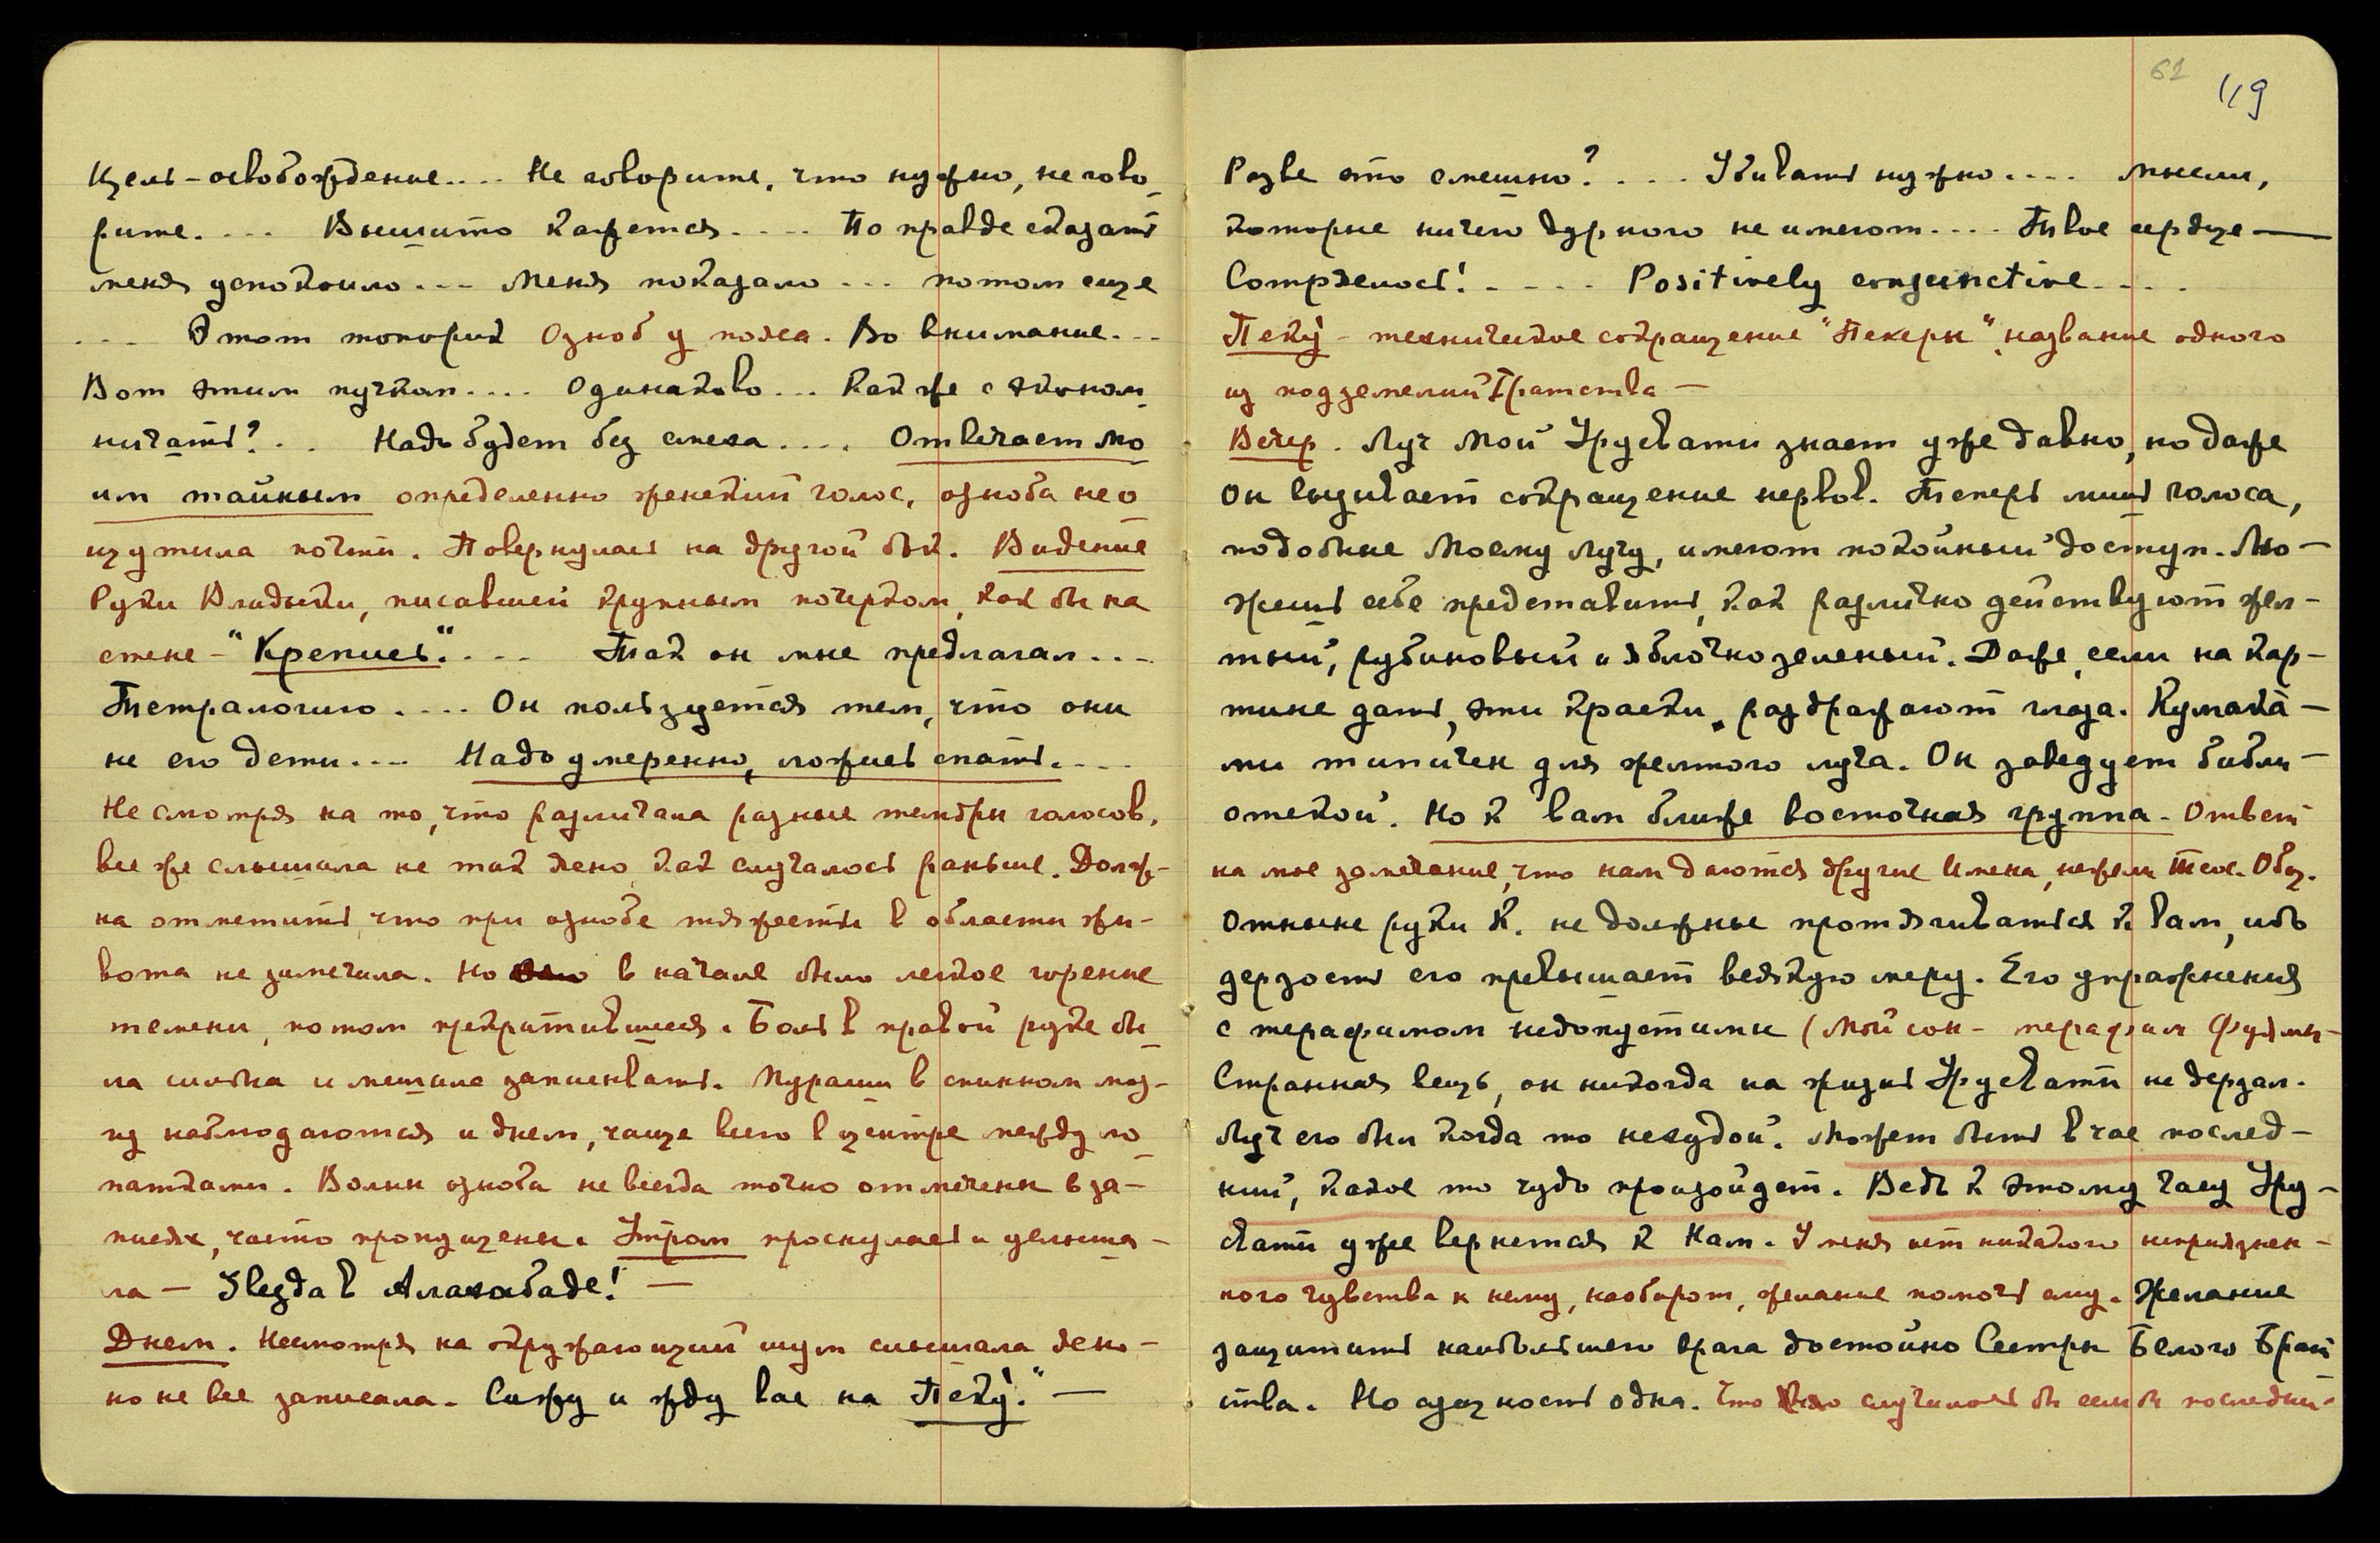 Цель – освобождение.... Не говорите, что нужно, не гово-
рите.... Вышито кажется.... По правде сказать
меня успокоило... Меня показало... потом еще
... Этот топорик Озноб у пояса. Во внимание...
Вот этим пучком.... Одинаково... Как же с экономи-
ничать?.. Надо будет без смеха.... Отвечает мо
им тайным определенно женский голос, озноба не о
щутила почти. Повернулась на другой бок. Видение
Руки Владыки, писавшей крупным почерком, как бы на
стене – "Крепись".... Так он мне предлагал...
Тетралогию.... Он пользуется тем, что они
не его дети.... Надо умеренно, ложись спать....
Не смотря на то, что различала разные тембры голосов,
все же слышала не так ясно, как случалось раньше. Долж-
на отметить, что при ознобе тяжести в области жи-
вота не замечала. Но в начале было легкое горение
темени, потом прекратившееся. Боль в правой руке бы-
ла сильна и мешала записывать. Мураши в спинном моз-
гу наблюдаются и днем, чаще всего в центре между ло
патками. Волны озноба не всегда точно отмечены в за-
писях, часто пропущены. Утром проснулась и услыша-
ла – Звезда в Алахабаде! –
Днем. Несмотря на окружающий шум слышала ясно –
но не все записала. Сижу и жду вас на Пекý." –
61
119
Разве это смешно?.... Убивать нужно.... мысли,
которые ничего дурного не имеют.... Твое сердце –
Сотряслось!..... Positively conjunctive....
Пекý – техническое сокращение "Пекеры", название одного
из подземелий Братства –
Вечер. Луч Мой Урусвати знает уже давно, но даже
Он вызывает сокращение нервов. Теперь лишь голоса,
подобные Моему лучу, имеют покойный доступ. Мо-
жешь себе представить, как различно действуют жел-
тый, рубиновый и яблочнозеленый. Даже, если на кар-
тине дать, эти краски раздражают глаза. Кумака-
ми типичен для желтого луча. Он заведует библи-
отекой. Но к вам ближе восточная группа. Ответ
на мое замечание, что нам даются другие Имена, нежели Теос. Общ.
Отныне руки К. не должны протягиваться к вам, ибо
дерзость его превышает всякую меру. Его упражнения
с терафимом недопустимы (Мой сон – терафим
Странная вещь, он никогда на жизнь Урусвати не дерзал.
Луч его был когда то нехудой. Может быть в час послед-
ний, какое то чудо произойдет. Ведь к этому часу Уру-
свати уже вернется к Нам. У меня нет никакого неприязнен-
ного чувства к нему, наоборот, желание помочь ему. Желание
защитить наибольшего врага достойно Сестры Белого Брат
ства. Но сущность одна. Что случилось бы если бы последни-